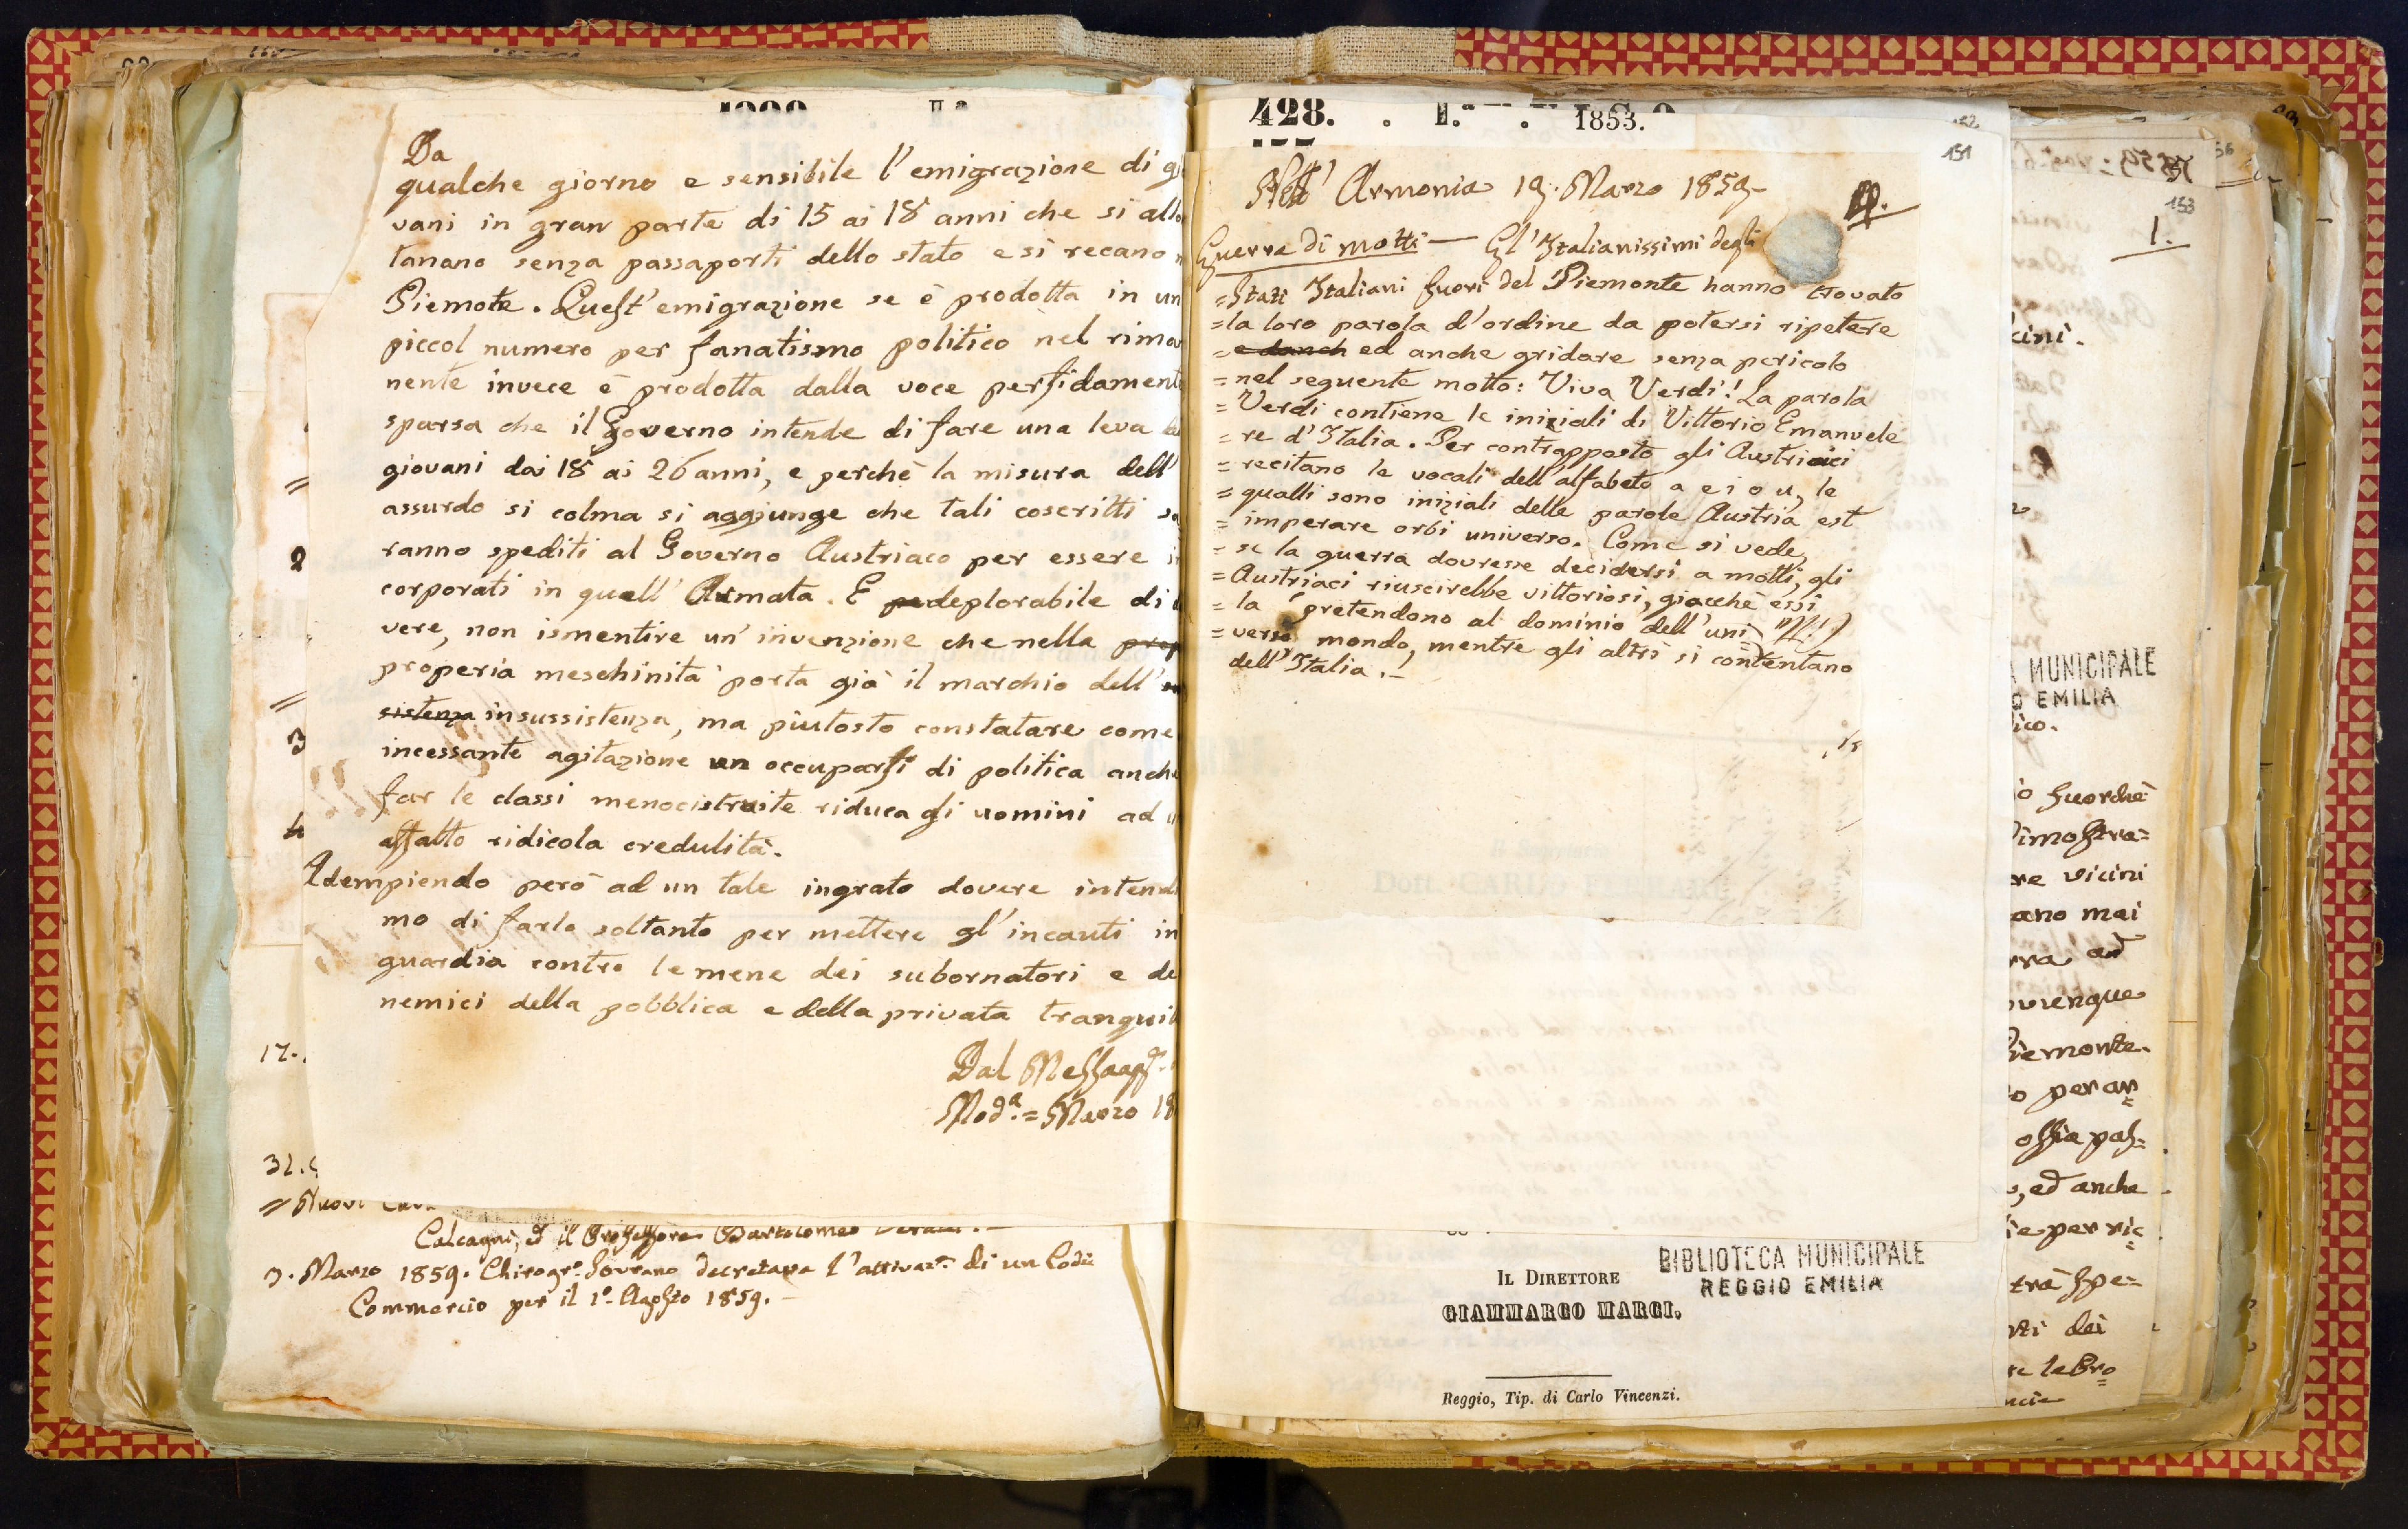 Da
qualche giorno e sensibile l'emigrazione di
vani in gran parte di 15 ai 18 anni che si allo
tanano senza passaporti dello stato e si recano
Piemote. Quest'emigrazione se è prodotta in un
piccol numero per fanatismo politico nel rima
nente invece è prodotta dalla voce perfidamente
sparsa che il Governo intende di fare una leva
giovani dai 18 ai 26 anni, e perchè la misura dell'
assurdo si colma si aggiunge che tali coscritti sa
ranno spediti al Governo Austriaco per essere in
corporati in quell'Armata. E deplorabile di
vere, non ismentire un'invenzione che nella prop
properia meschinità porta già il marchio dell'
sistenza insussistenza, ma piutosto constatare come
incessante agitazione un occuparsi di politica anche
far le classi menocistruite riduca gli uomini ad
affatto ridicola credulità.
Adempiendo però ad un tale ingrato dovere intend
mo di farlo soltanto per mettere gl'incauti in
guardia contro le mene dei subornatori e de
nemici della pobblica e della privata tranquil
Dal
Mod.ª = Marzo 18
2
3
4
17.
31.
= Nuovi
Calcagni, ed il Professore Bartolomeo
3. Marzo 1859. Chirogr.º Sovrano decretava l'attivaz.e di un Codi
Commercio per il 1º Agosto 1859. –
428. . I. . 1853.
151
Nell'Armonia 19. Marzo 1859 –
Guerra di motti — Gl'Italianissimi degli
= Stati Italiani fuori del Piemonte hanno trovato
= la loro parola d'ordine da potersi ripetere
= e danch ed anche gridare senza pericolo
= nel seguente motto: Viva Verdi! La parola
= Verdi contiene le iniziali di Vittorio Emanuele
= re d'Italia. Per contrapposto gli Austriaci
= recitano le vocali dell'alfabeto a e i o u, le
= qualli sono iniziali delle parole Austria est
= imperare orbi universo. Come si vede,
= se la guerra dovesse decidersi a motti, gli
= Austriaci riuscirebbe vittoriosi, giacchè essi
= la pretendono al dominio dell'uni
= verso mondo, mentre gli altri si contentano
dell'Italia. –
IL DIRETTORE
GIAMMARCO MARCI.
BIBLIOTECA MUNICIPALE
REGGIO EMILIA
Reggio, Tip. di Carlo Vincenzi.
153
1.
cini.
A MUNICIPALE
O EMILIA
ico.
ò fuorchè
Dimostra=
re vicini
ano mai
rra ad
vienque
Piemonte.
o per an
ossia pas=
, ed anche
ie per ric
trà spe=
ti dei
le Pro